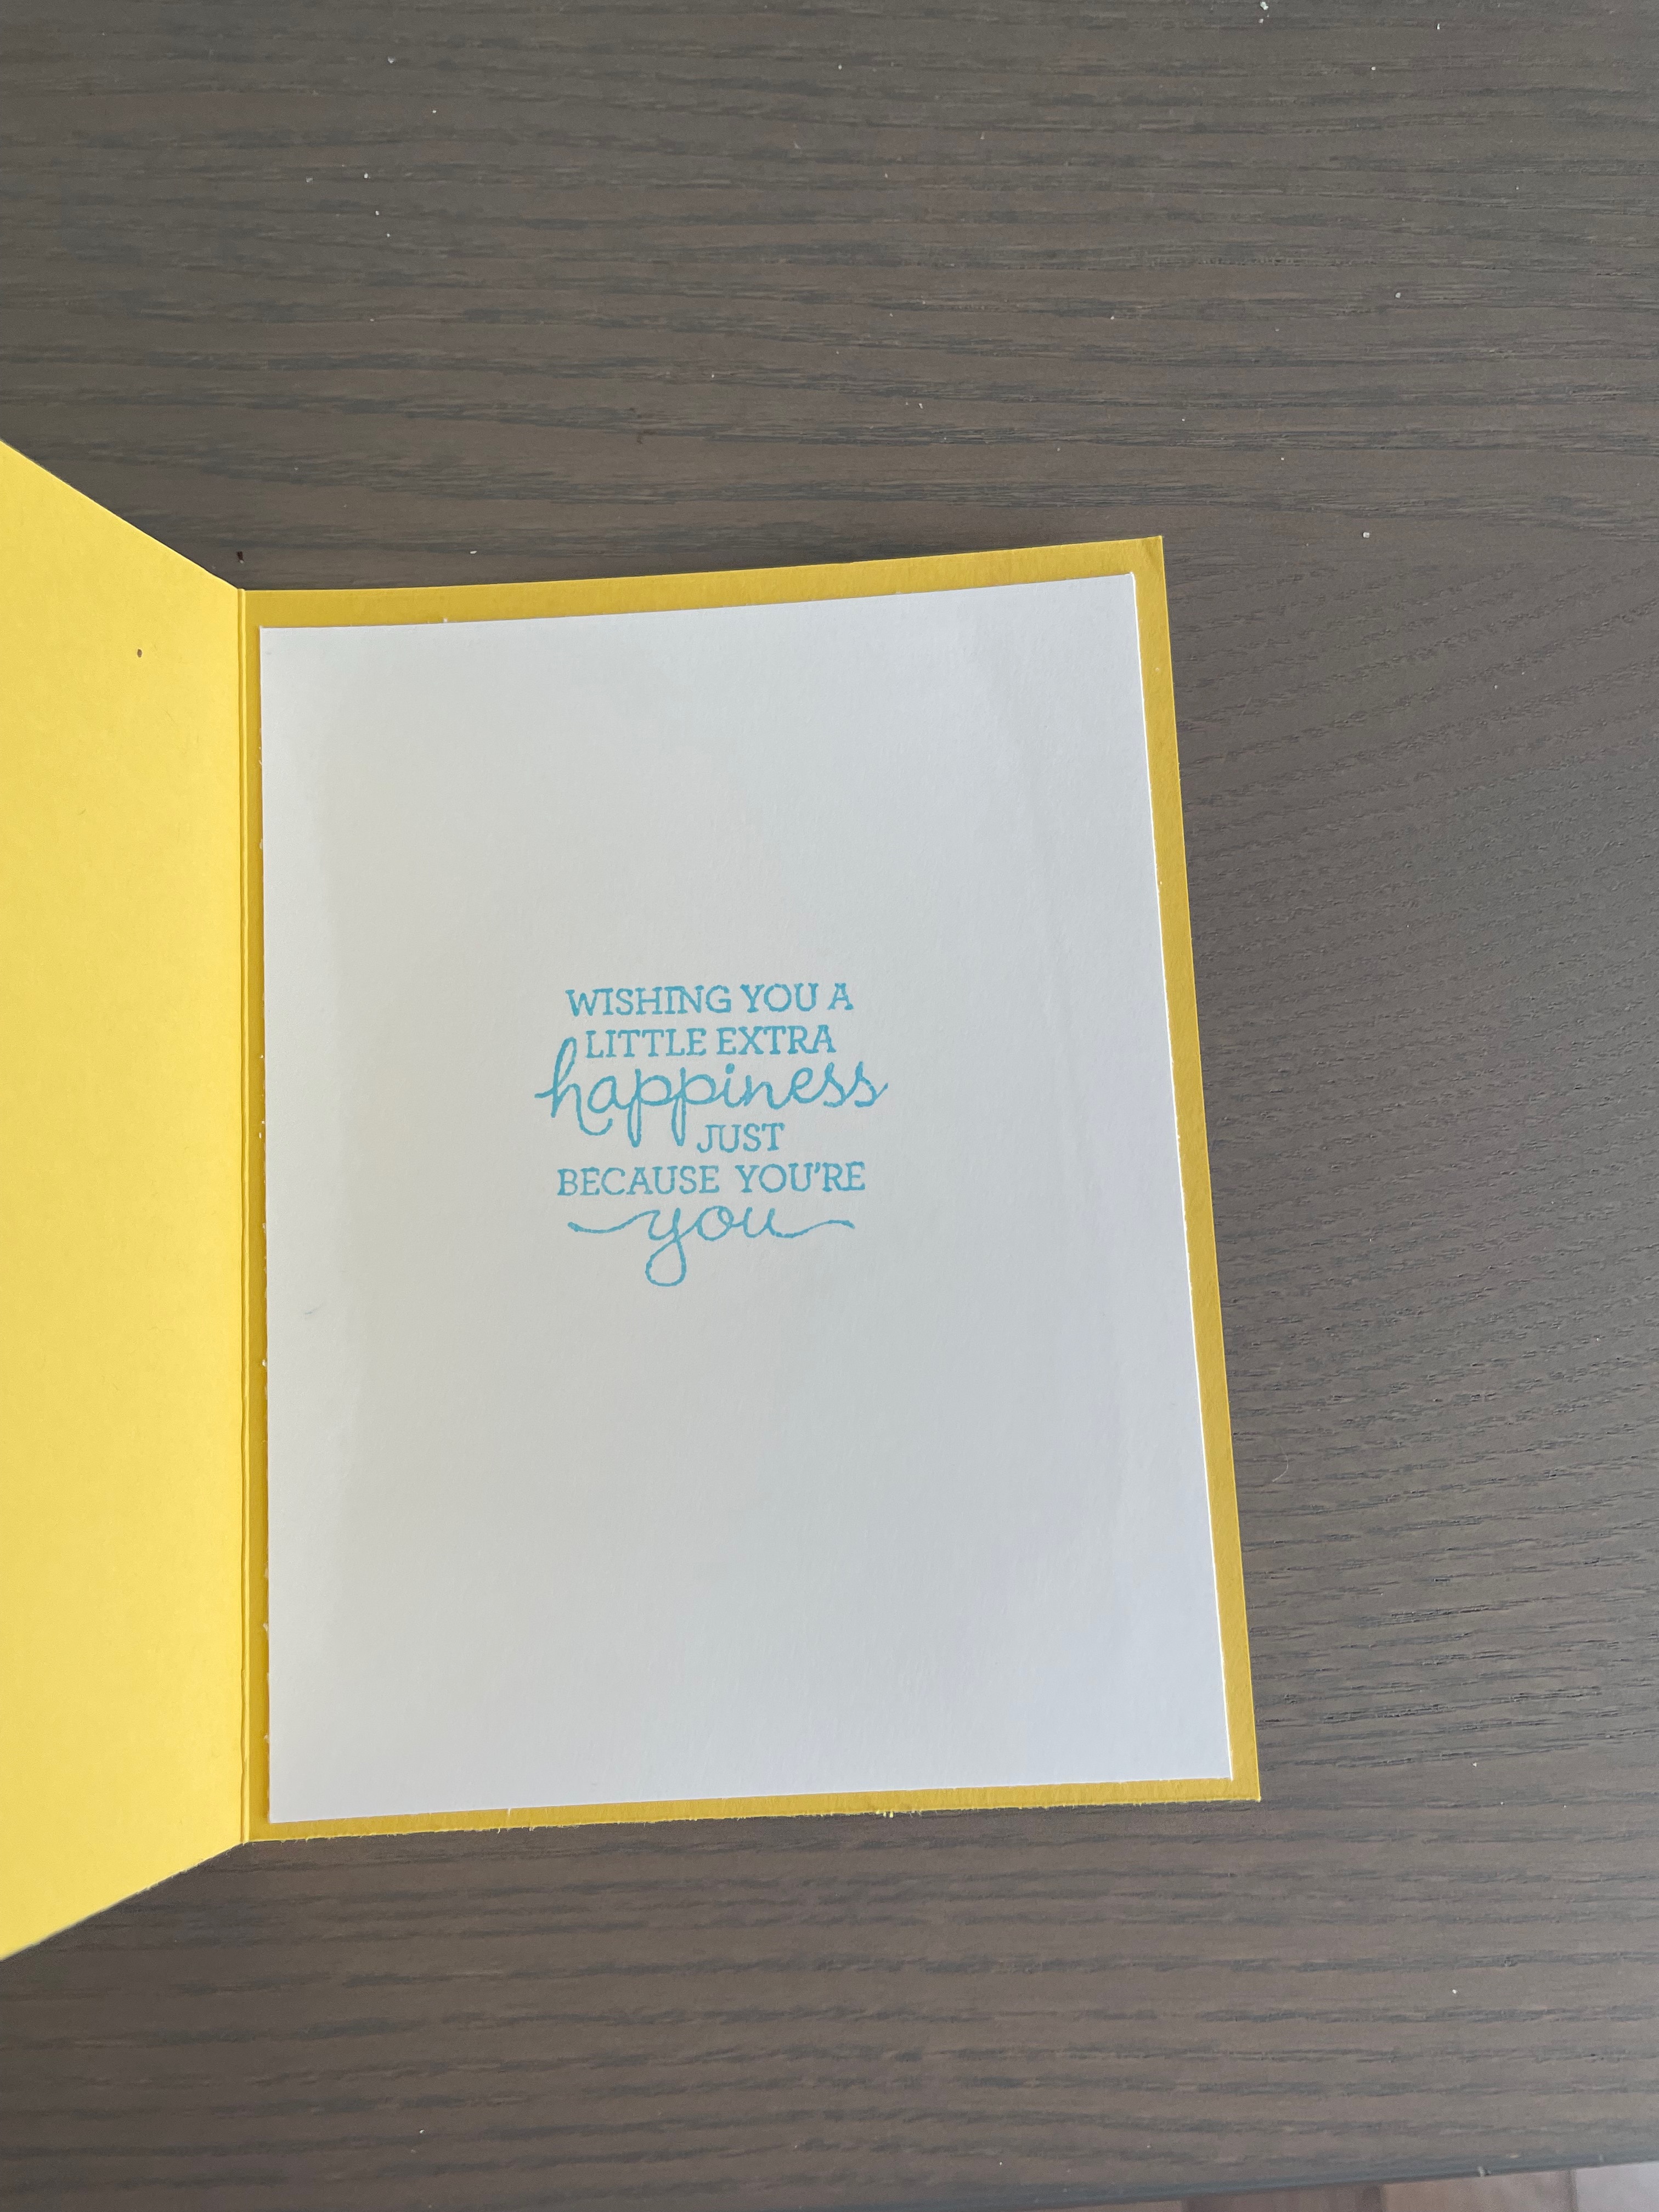 WISHING YOU A
LITTLE EXTRA
happiness
JUST
BECAUSE YOU'RE
you